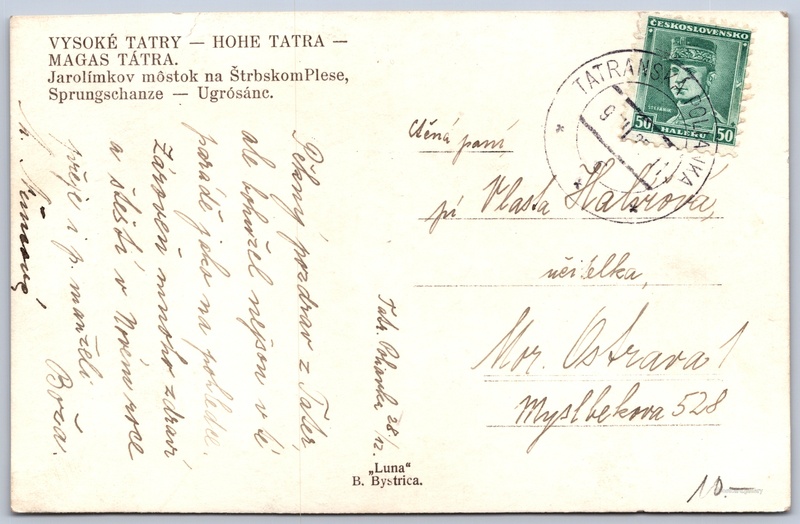 VYSOKÉ TATRY — HOHE TATRA —
MAGAS TÁTRA.
Jarolímkov môstok na ŠtrbskomPlese,
Sprungschanze — Ugrósánc.
Pěkný pozdrav z Tater,
ale bohužel nejsou v té
parádě jako na pohledu.
Zároveň mnoho zdraví
a štěstí v Novém roce
přeje i p. manželi
Boža.
Tatr. Polianka 28/12
„Luna“
B. Bystrica.
ČESKOSLOVENSKO
ŠTEFÁNIK
50 HALÉŘŮ 50
TATRANSKÁ POLIANKA
Ctěná paní
pí Vlasta
učitelka,
Mor. Ostrava 1
Myslbekova 528
10.—